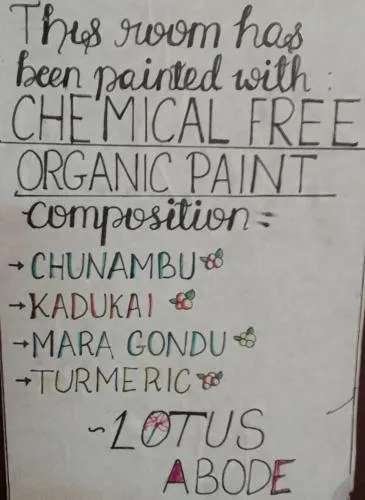 This room has
been painted with :
CHEMICAL FREE
ORGANIC PAINT
composition =
→ CHUNAMBU
→ KADUKAI
→ MARA GONDU
→ TURMERIC
~ LOTUS
ABODE